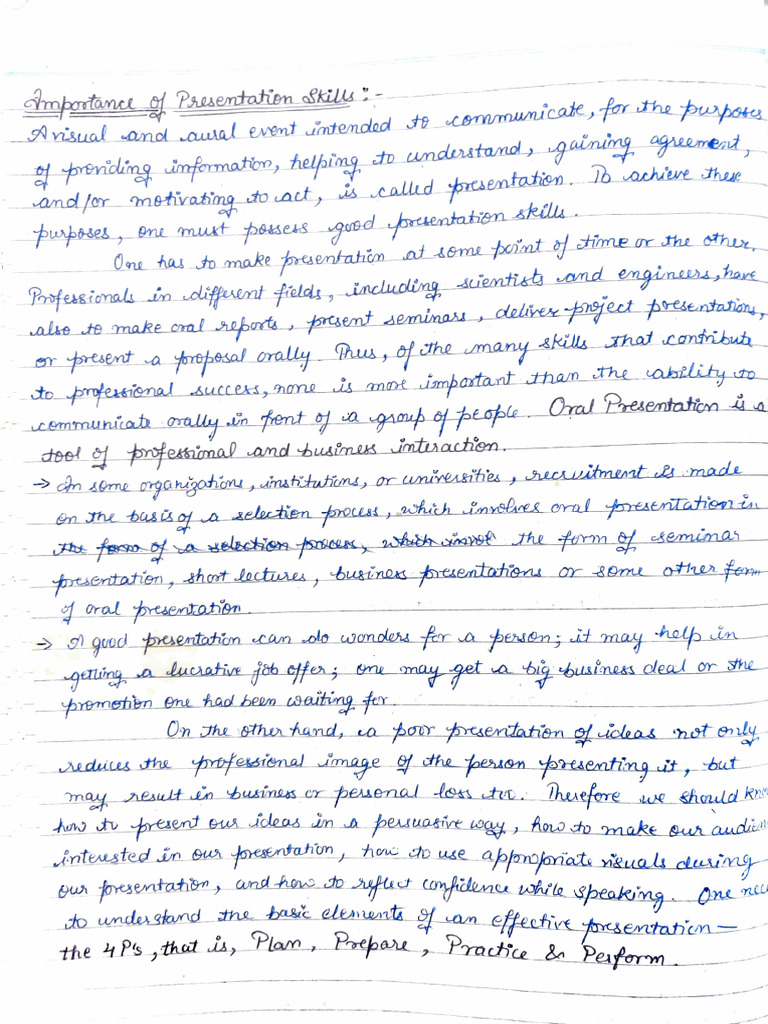 Importance of Presentation Skills :-
A visual and aural event intended to communicate, for the purposes
of providing information, helping to understand, gaining agreement,
and/or motivating to act, is called presentation. To achieve these
purposes, one must possess good presentation skills.
One has to make presentation at some point of time or the other.
Professionals in different fields, including scientists and engineers, have
also to make oral reports, present seminars, deliver project presentations,
or present a proposal orally. Thus, of the many skills that contribute
to professional success, none is more important than the ability to
communicate orally in front of a group of people. Oral Presentation is a
tool of professional and business interaction.
→ In some organizations, institutions, or universities, recruitment is made
on the basis of a selection process, which involves oral presentation in
the form of a selection process, which invol the form of seminar
presentation, short lectures, business presentations or some other form
of oral presentation.
→ A good presentation can do wonders for a person; it may help in
getting a lucrative job offer; one may get a big business deal or the
promotion one had been waiting for.
On the other hand, a poor presentation of ideas not only
reduces the professional image of the person presenting it, but
may result in business or personal loss too. Therefore we should kno
how to present our ideas in a persuasive way, how to make our audien
interested in our presentation, how to use appropriate visuals during
our presentation, and how to reflect confidence while speaking. One nee
to understand the basic elements of an effective presentation —
the 4P's, that is, Plan, Prepare, Practice & Perform.